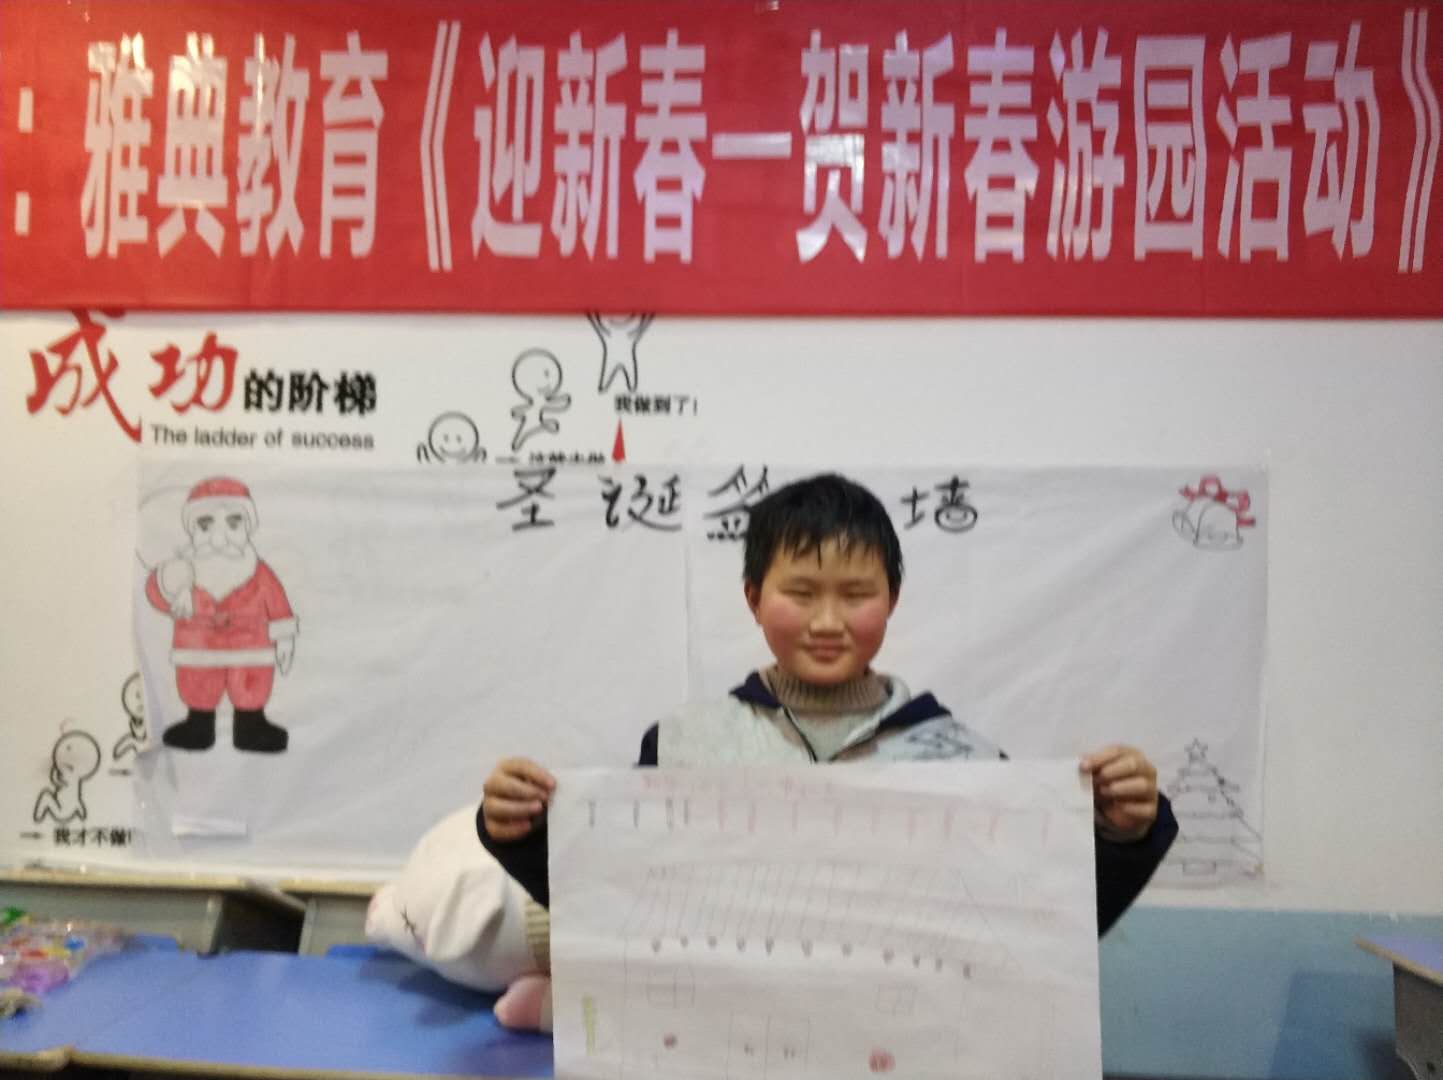 ：雅典教育《迎新春—贺新春游园活动》
成功的阶梯
The ladder of success
我做到了！
圣诞签 墙
我才不做!